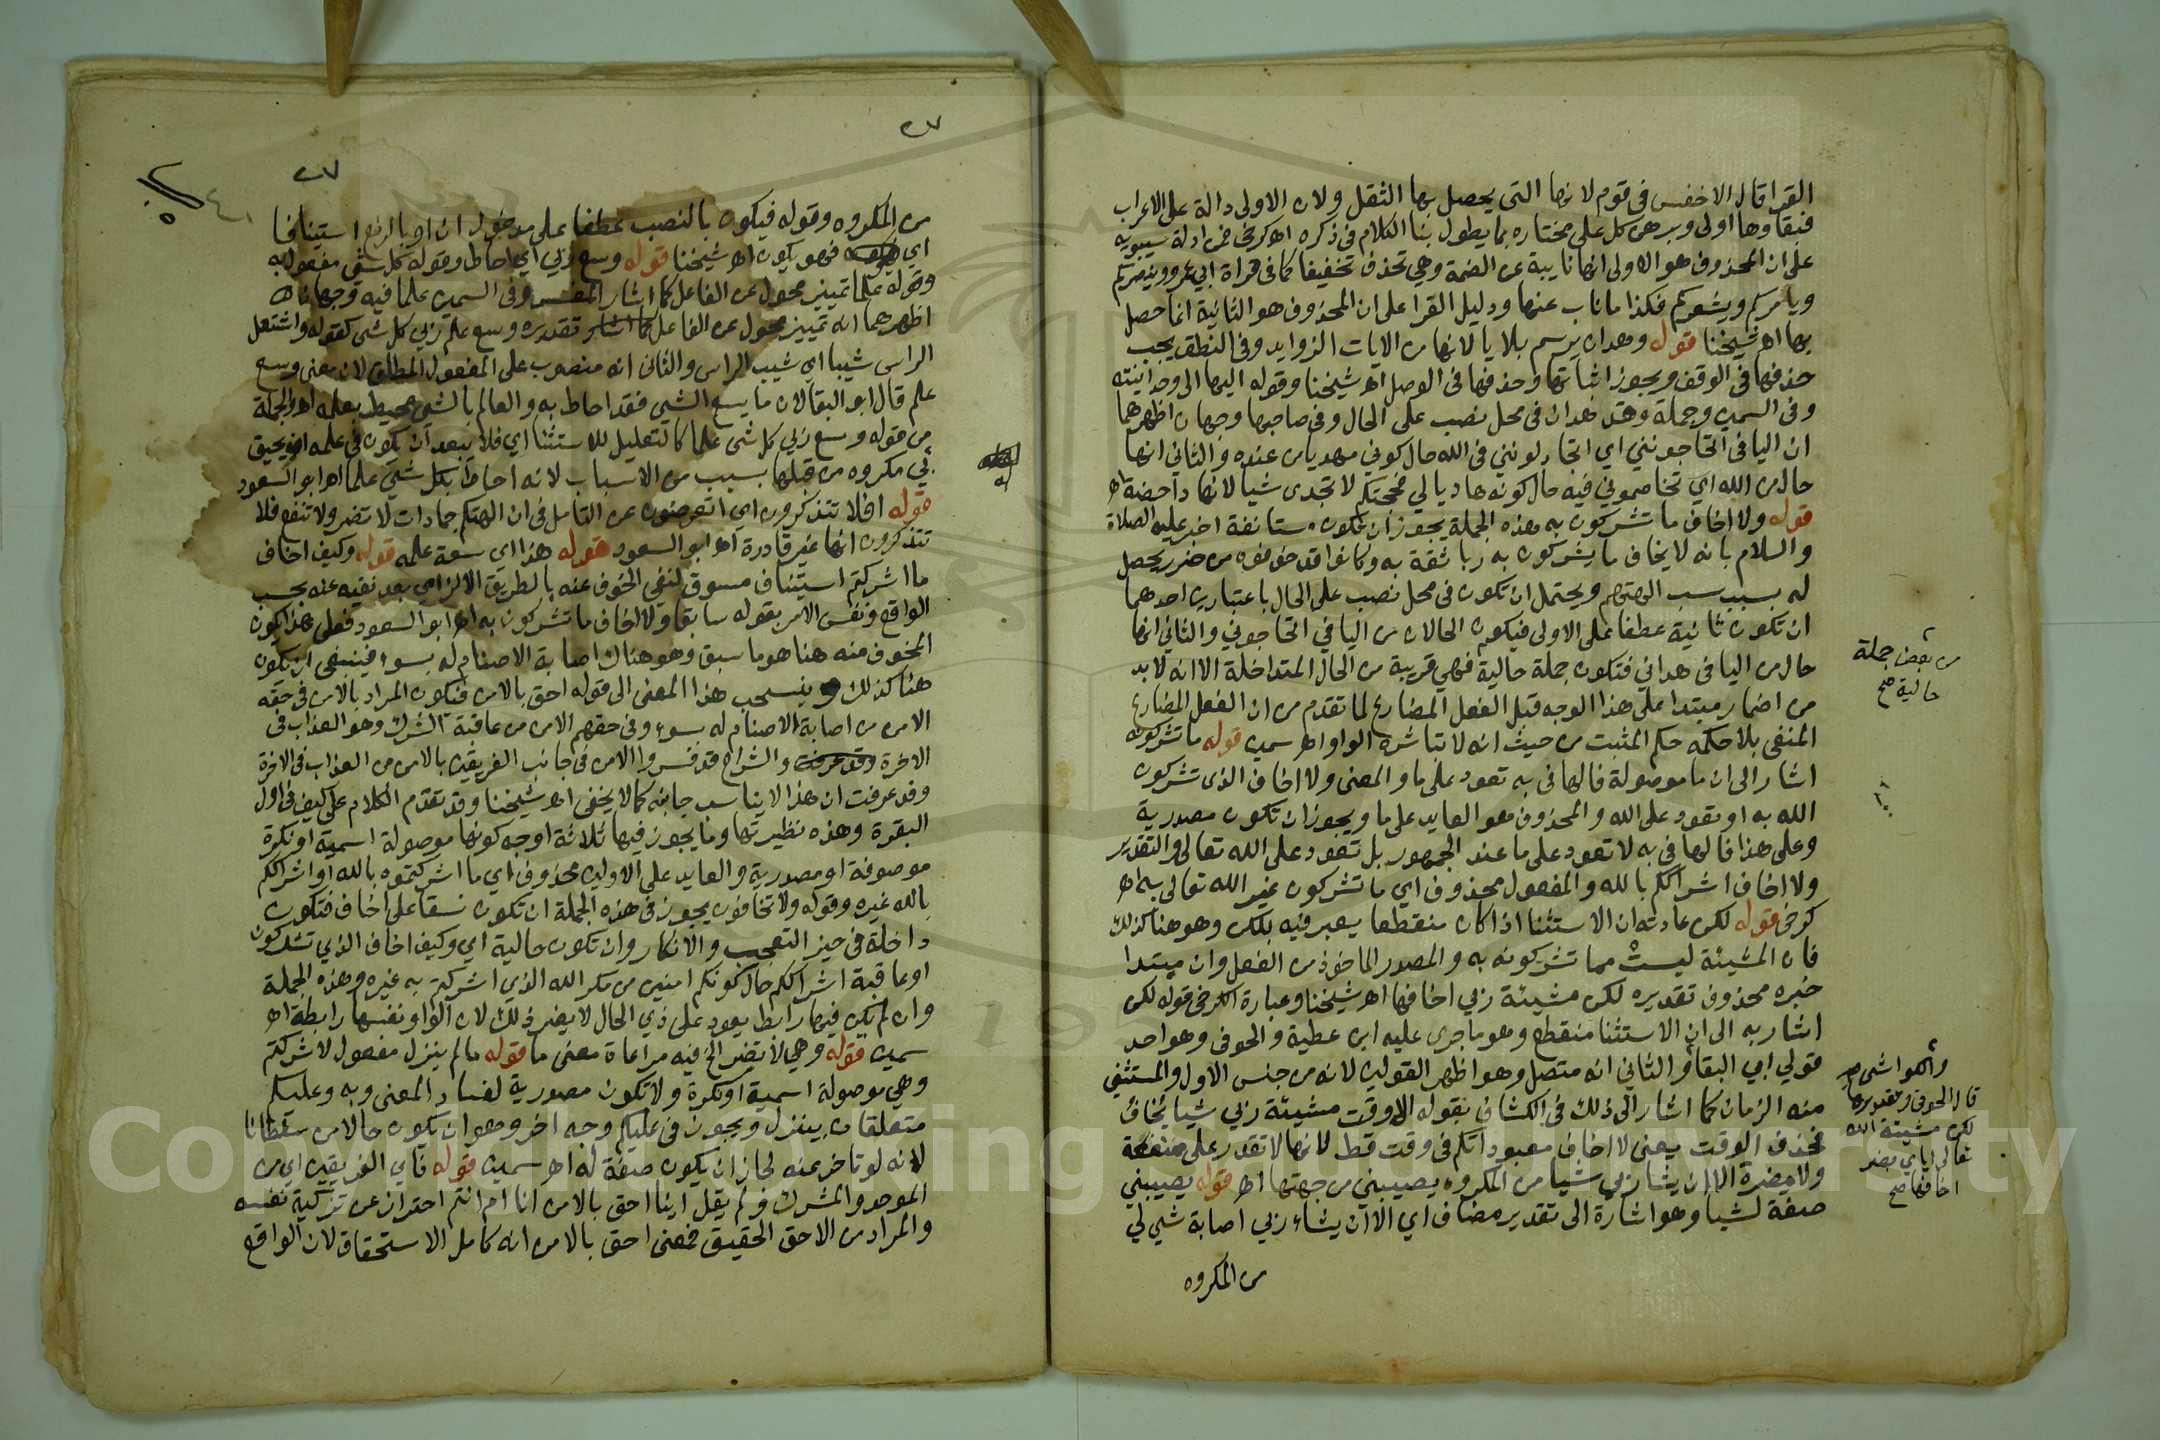 القرا قال الاخفش في قوم لانها التي يحصل بها الثقل ولان الاولى دالة على الاعراب
فبقاوها اولى وبرهن كل على مختاره بما يطول بنا الكلام في ذكره اهـ كرخي ادلة سيبويه
على ان المحذوف هو الاولى انها نايبة عن الضمة وهي تحذف تخفيفا كما في قراة ابي عمرو وينصركم
ويامركم ويشعركم فكذا ما ناب عنها ودليل القرا على ان المحذوف هو الثانية انما حصل
بها اهـ شيخنا قوله وهدان يرسم بلا يا لانها من الايات الزوايد وفي النطق يجب
حذفها في الوقف ويجوز اثباتها وحذفها في الوصل اهـ شيخنا وقوله اليها الى وحدانيته
وفي السمين وجملة وقد هدان في محل نصب على الحال وفي صاحبها وجهان اظهرهما
ان اليا في اتحاجونني اي اتجادلونني في الله حال كوني مهديا من عنده والثاني انها
حال من الله اي تخاصموني فيه حال كونه هاديا لي فحجتكم لا تجدى شيا لانها داحضة اهـ
قوله ولا اخاف ما تشركون به هذه الجملة يجوز ان تكون مستانفة اخبر عليه الصلاة
والسلام بانه لا يخاف ما يشركون به ربا ثقة به وكانوا قد خوفوه من ضرر يحصل
له بسبب سب الهتهم ويحتمل ان تكون في محل نصب على الحال باعتبارين احدهما
ان تكون ثانية عطفا على الاولى فيكون الحالان من اليا في اتحاجوني والثاني انها
حال من اليا في هداني فتكون جملة حالية فهي قريبة من الحال المتداخلة الا انه لا بد
من اضمار مبتدا على هذا الوجه قبل الفعل المضارع لما تقدم من ان الفعل المضارع
المنفي بلا حكمه حكم المثبت من حيث انه لا تباشره الواو اهـ سمين قوله ما تشركونه
اشار الى ان ما موصولة فالها في به تعود على ما والمعنى ولا اخاف الذى تشركون
الله به او تعود على الله والمحذوف هو العايد على ما ويجوز ان تكون مصدرية
وعلى هذا فالها في به لا تعود على ما عند الجمهور بل تعود على الله تعالى والتقدير
ولا اخاف اشراككم بالله والمفعول محذوف اي ما تشركون غير الله تعالى به اهـ
كرخي قوله لكن عادته ان الاستثنا اذا كان منقطعا يعبر فيه بلكن وهو هنا كذلك
فان المشيئة ليست مما تشركونه به والمصدر الماخوذ من الفعل وان مبتدا
خبره محذوف تقديره لكن مشيئة ربي اخافها اهـ شيخنا وعبارة الكرخي قوله لكن
اشار به الى ان الاستثنا منقطع وهو ما جرى عليه ابن عطية والحوفي وهو احد
قولي ابي البقا والثاني انه متصل وهو اظهر القولين لانه من جنس الاول والمستثنى
منه الزمان كما اشار الى ذلك في الكشاف بقوله الا وقت مشيئة ربي شيا يخاف
فحذف الوقت يعني لا اخاف معبوداتكم في وقت قط لانها لا تقدر على منفعة
ولا مضرة الا ان يشا ربي شيا من المكروه يصيبني من جهتها اهـ قوله يصيبني
صفة لشيا وهو اشارة الى تقدير مضاف اي الا ان يشاء ربي اصابة شي لي
من المكروه
من بعض جملة
حالية صح
والكواشي صح
قال الحوفي وتقديره
لكن مشيئة الله
تعالى اياي بضر
اخافها صح
٢٧
٢٧
من المكروه وقوله فيكون بالنصب عطفا على مدخول ان او بالرفع استينافا
اي فهو يكون اهـ شيخنا قوله وسع ربي اي احاط وقوله كل شي مفعول به
وقوله علما تمييز محول عن الفاعل كما اشار المفسر وفي السمين علما فيه وجهان
اظهرهما انه تمييز محول عن الفاعل كما اشار تقديره وسع علم ربي كل شي كقوله واشتعل
الراس شيبا اي شيب الراس والثاني انه منصوب على المفعول المطلق لان معنى وسع
علم قال ابو البقا لان ما يسع الشي فقد احاط به والعالم بالشي محيط بعلمه اهـ والجملة
من قوله وسع ربي كل شي علما كالتعليل للاستثنا اي فلا يبعد ان يكون في علمه ان يحيق
بي مكروه من قبلها بسبب من الاسباب لانه احاط بكل شي علما اهـ ابو السعود
قوله افلا تتذكرون اي اتعرضون عن التامل في ان الهتكم جمادات لا تضر ولا تنفع فلا
تتذكرون انها غير قادرة اهـ ابو السعود قوله هذا اي سعة علمه قوله وكيف اخاف
ما اشركتم استيناف مسوق لنفي الخوف عنه بالطريق الالزامي بعد نفيه عنه بحسب
الواقع ونفس الامر بقوله سابقا ولا اخاف ما تشركون به اهـ ابو السعود فعلى هذا يكون
المخوف منه هنا هو ما سبق وهو هناك اصابة الاصنام له بسوا فينبغي ان يكون
هنا كذلك وينسحب هذا المعنى الى قوله احق بالامن فيكون المراد بالامن في حقه
الامن من اصابة الاصنام له بسوء وفي حقهم الامن من عاقبة الشرك وهو العذاب في
الاخرة والشراح قد فسروا الامن في جانب الفريقين بالامن من العذاب في الاخرة
وقد عرفت ان هذا لا يناسب جانبه كما لا يخفى اهـ شيخنا وقد تقدم الكلام على كيف في اول
البقرة وهذه نظيرتها وما يجوز فيها ثلاثة اوجه كونها موصولة اسمية او نكرة
موصوفة او مصدرية والعايد على الاولين محذوف اي ما اشركتموه بالله او اشراككم
بالله غيره وقوله ولا تخافون يجوز في هذه الجملة ان تكون نسقا على اخاف فتكون
داخلة في حيز التعجب والانكار وان تكون حالية اي وكيف اخاف الذي تشركون
او عاقبة اشراككم حال كونكم امنين من مكر الله الذي اشركتم به غيره وهذه الجملة
وان لم يكن فيها رابط يعود على ذي الحال لا يضر ذلك لان الواو نفسها رابطة اهـ
سمين قوله وهي لا تضر الخ فيه مراعاة معنى ما قوله ما لم ينزل مفعول لاشركتم
وهي موصولة اسمية او نكرة ولا تكون مصدرية لفساد المعنى وبه وعليكم
متعلقان بينزل ويجوز في عليكم وجه اخر وهو ان يكون حالا من سلطانا
لانه لو تاخر عنه لجاز ان يكون صفة له اهـ سمين قوله فاي الفريقين اي من
الموحد والمشرك ولم يقل اينا احق بالامن انا ام انتم احترازا عن تزكية نفسه
والمراد من الاحق الحقيق فمعنى احق بالامن انه كامل الاستحقاق لان الواقع